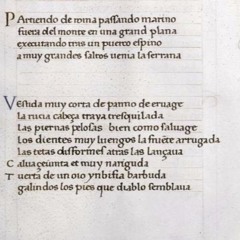 Partiendo de roma passando marino
fuera del monte en una grand plana
executando tras un puerco espino
a muy grandes saltos venia la serrana
Vestida muy corta de panno de eruage
la rucia cabeça traya tresquilada
las piernas pelosas bien como saluage
los dientes muy luengos la fruente arrugada
las tetas disformes atras las lançaua
calua çeiunta et muy nariguda
tuerta de un oio ynbifia barbuda
galindos los pies que diablo semblaua